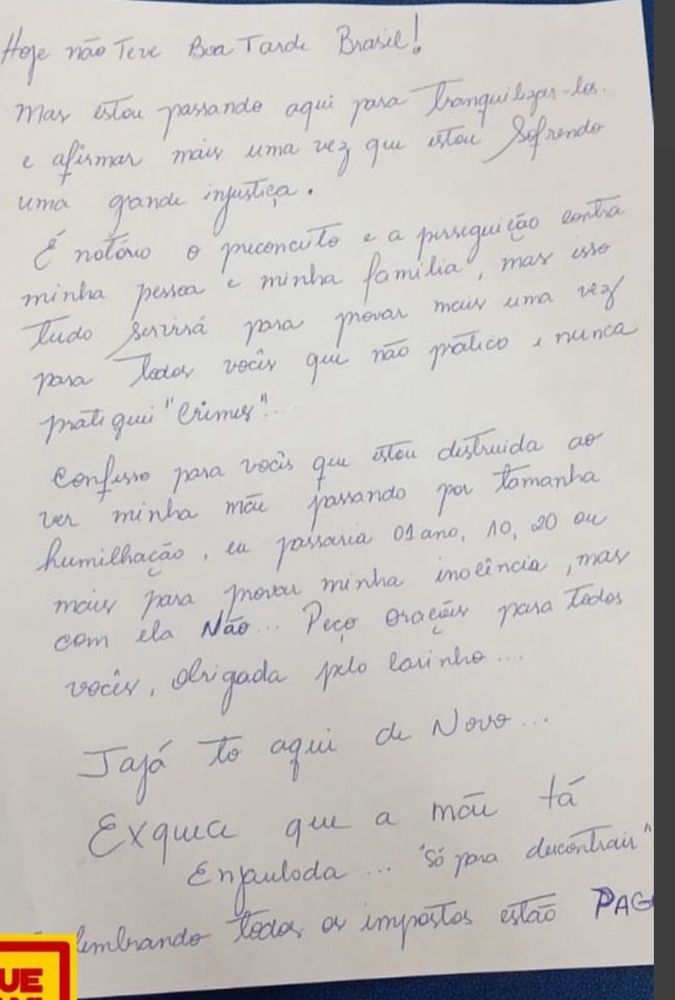 Hoje não Teve Boa Tarde Brasil!
Mas estou passando aqui para Tranquilizar-los.
e afirmar mais uma vez que estou Sofrendo
uma grande injustiça.
É notório o preconceito e a perseguição contra
minha pessoa e minha família, mas isso
Tudo Servirá para provar mais uma vez
para Todos vocês que não pratico e nunca
pratiquei "Crimes"...
Confesso para vocês que estou distruida ao
ver minha mãe passando por tamanha
humilhação, eu passaria 01 ano, 10, 20 ou
mais para provar minha inocência, mas
com ela Não... Peço orações para Todos
vocês, Obrigada pelo carinho...
Jajá to aqui de Novo...
Exquece que a mãe tá
Enjaulada... "Só para descontrair"
lembrando todos os impostos estão PAG
UE